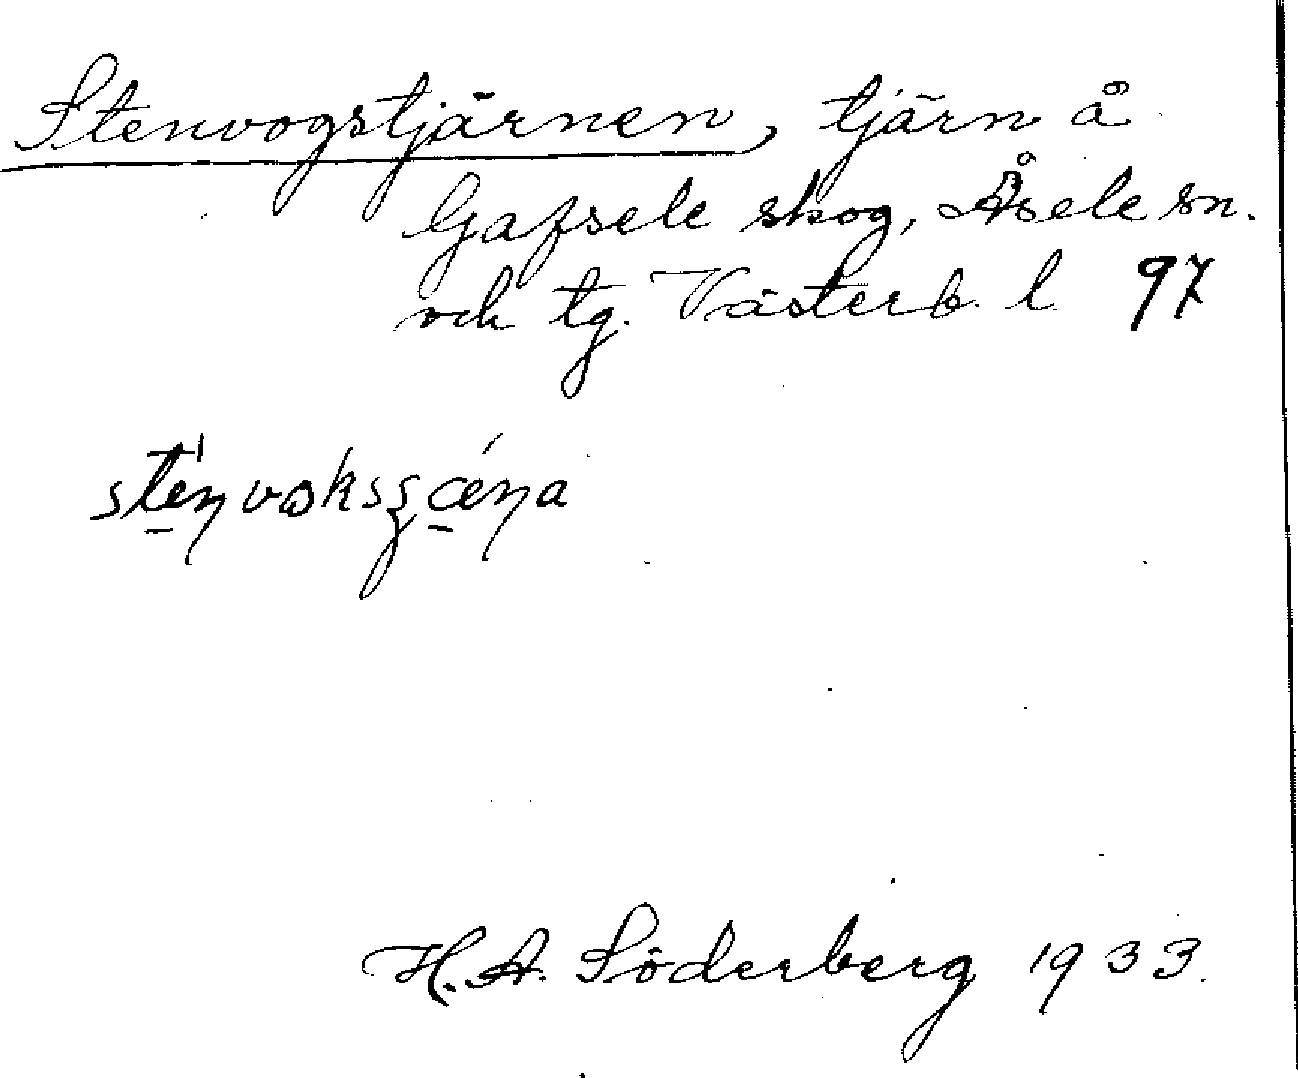 Stenvogstjärnen, tjärn å
Gafsele skog, Åsele sn.
och tg. Västerb. l 97
H. A. Söderberg 1933.